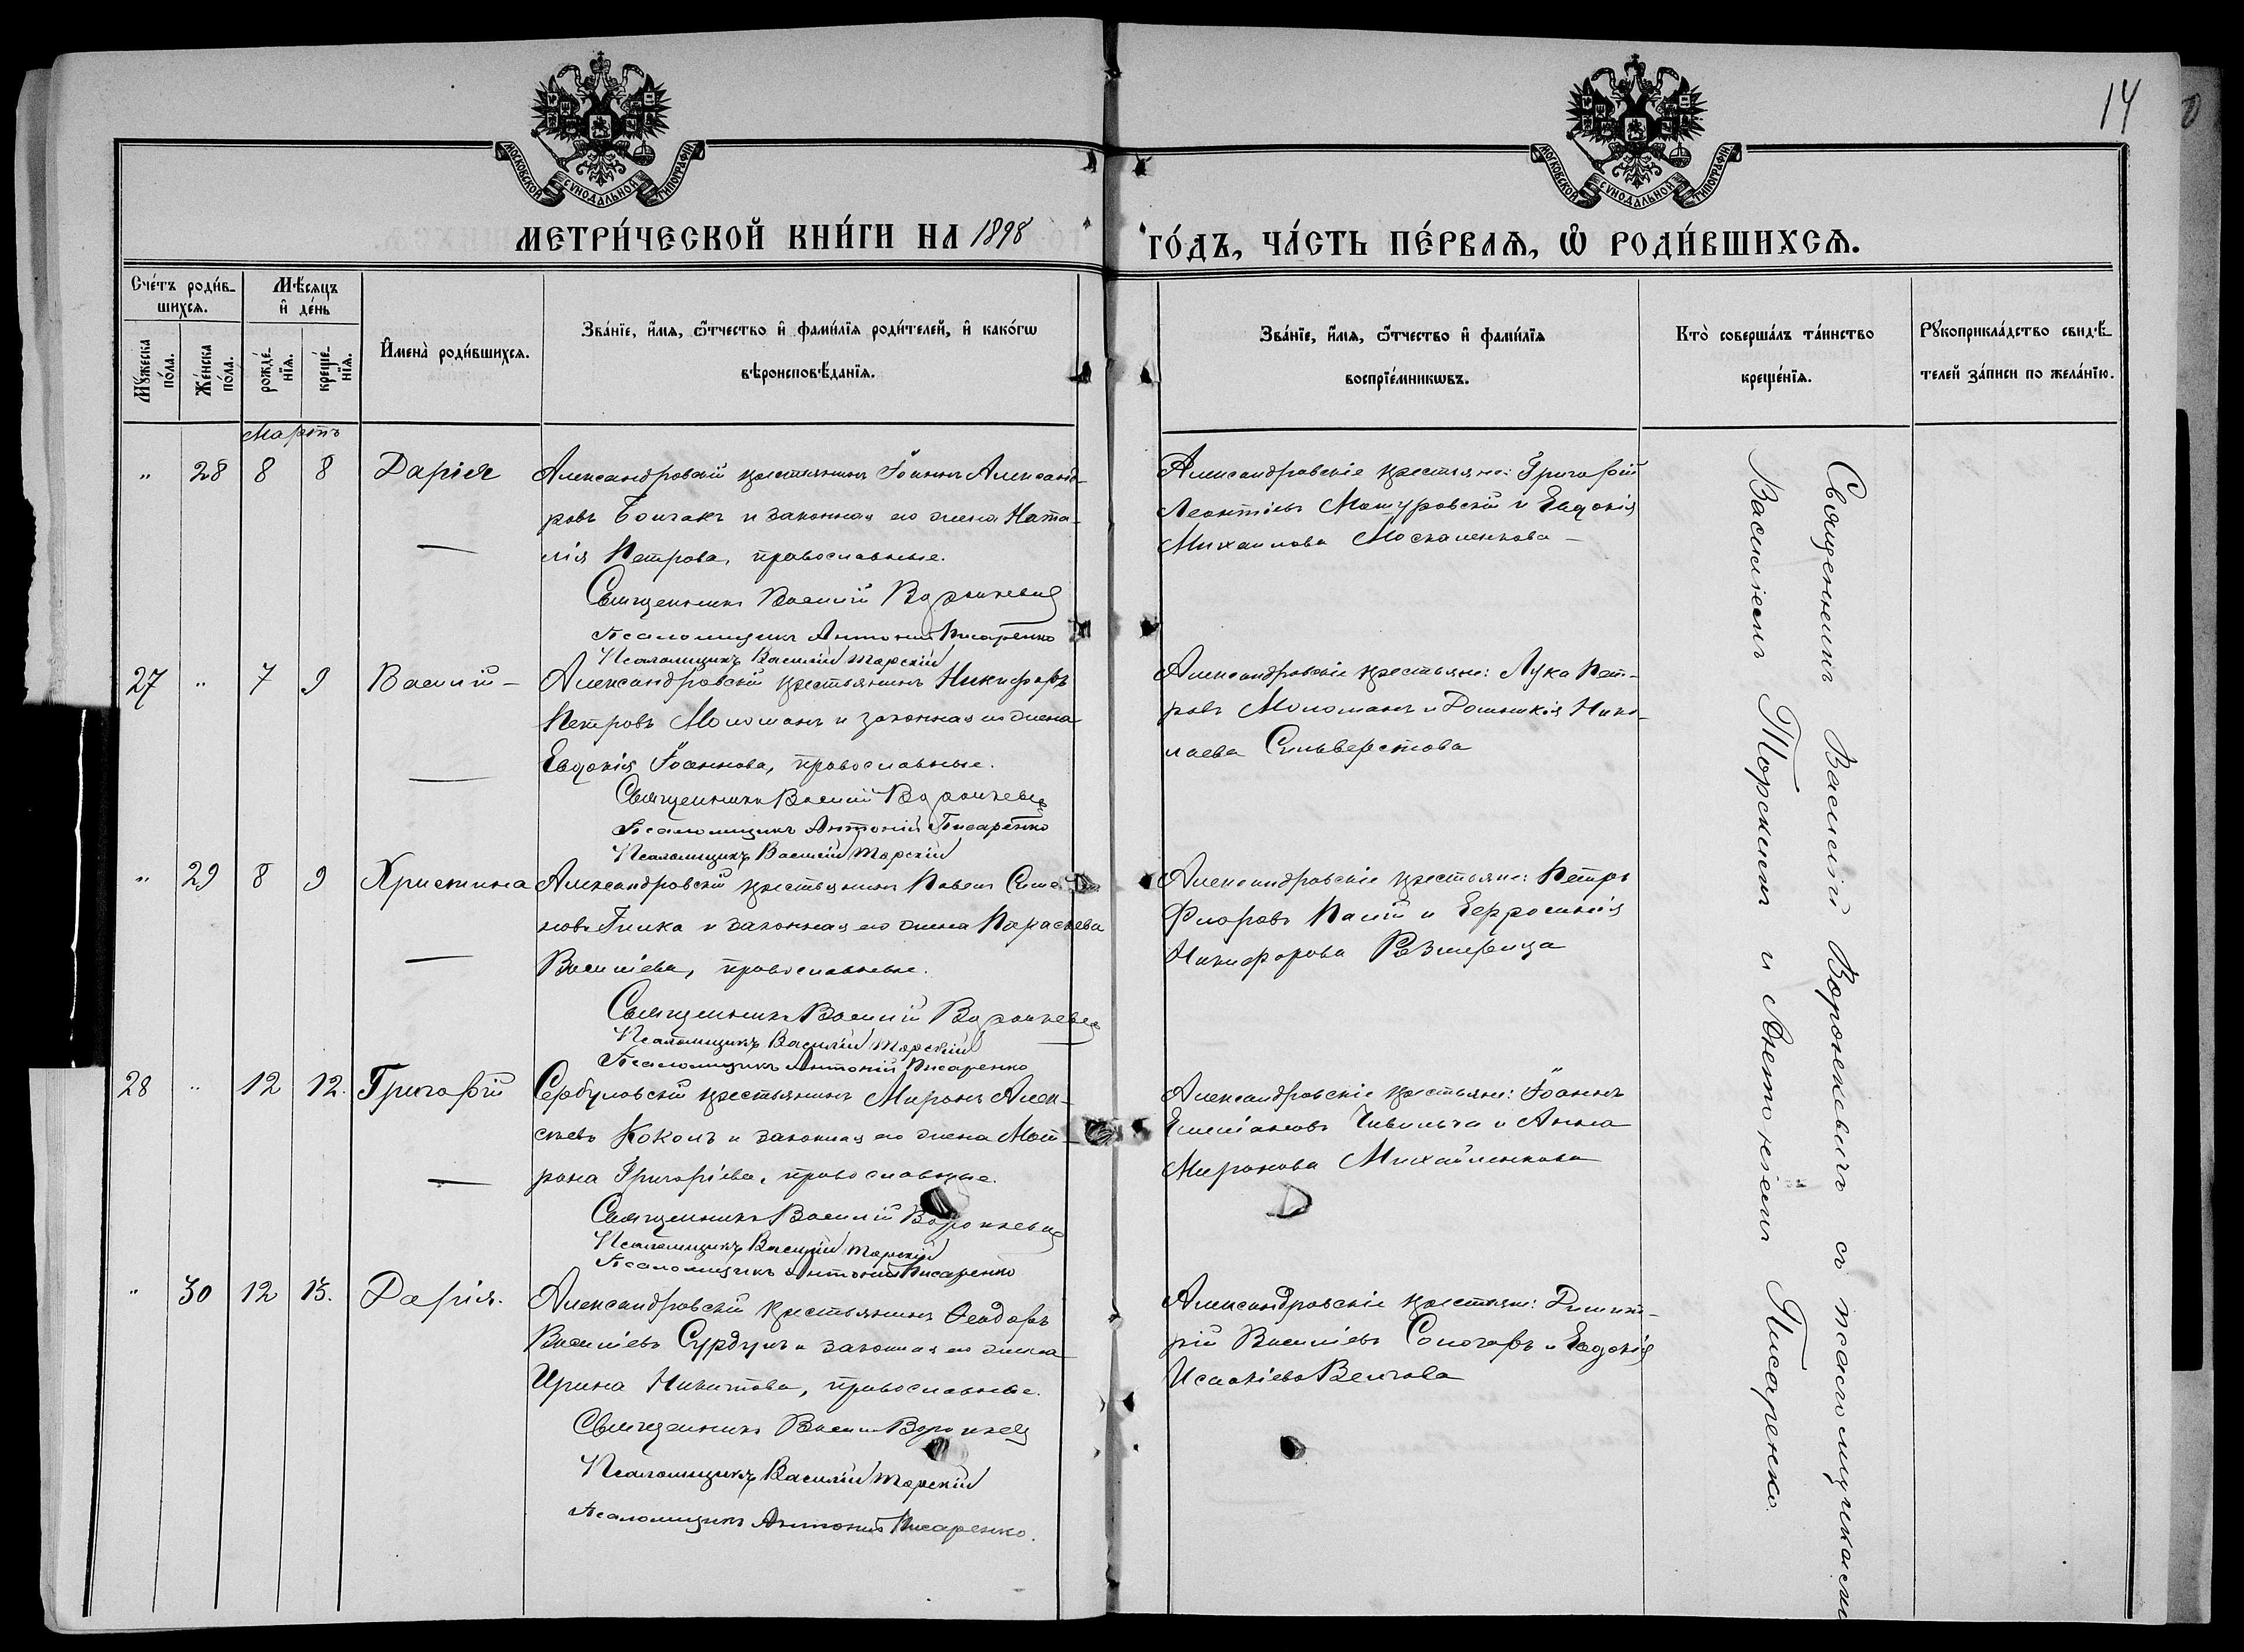 14
МОСКОВСКОЙ СУНОДАЛЬНОЙ ТИПОГРАФІИ
МОСКОВСКОЙ СУНОДАЛЬНОЙ ТИПОГРАФІИ
МЕТРИ́ЧЕСКОЙ КНИ́ГИ НА 1898
ГО́ДЪ, ЧА́СТЬ ПЕ́РВАЯ, Ѡ РОДИ́ВШИХСЯ.
Сче́тъ роди́в-
шихся.
Мѣсяцъ
и де́нь
Му́жеска по́ла.
Же́нска по́ла.
рожде́-
нїя.
креще́-
нїя.
Имена̀ роди́вшихся.
Зва́нїе, и́мя, ѻ́тчество и фами́лїя роди́телей, и како́гѡ
вѣроисповѣ́данїя.
Зва́нїе, и́мя, ѻ́тчество и фами́лїя
воспрїе́мникѡвъ.
Кто̀ соверша́лъ та́инство
креще́нїя.
Рꙋкоприкла́дство свидѣ́-
телей за́писи по жела́нїю.
Мартъ
" 28 8 8 Дарія
Александровскій крестьянинъ Іоаннъ Александ-
ровъ и законная его жена Ната-
лія Петрова, православные.
Священникъ Василій Воронкевич
Псаломщикъ Антоній Писаренко
Псаломщикъ Василій Торскій
Александровскіе крестьяне: Григорій
Леонтіевъ Мошуровскій и Евдокія
Михаилова Москаленкова
27 " 7 9 Василій
Александровскій крестьянинъ Никифоръ
Петровъ Моломанъ и законная его жена
Евдокія Іоаннова, православные.
Священникъ Василій Воронкевич
Псаломщикъ Антоній Писаренко
Псаломщикъ Василій Торскій
Александровскіе крестьяне: Лука Пет-
ровъ Моломанъ и Домникія Нико-
лаева Сильверстова
" 29 8 9 Христина
Александровскій крестьянинъ Павелъ Симео-
новъ Гилка и законная его жена Параскева
Василіева, православные.
Священникъ Василій Воронкевич
Псаломщикъ Василій Торскій
Псаломщикъ Антоній Писаренко
Александровскіе крестьяне: Петръ
Флоровъ Палій и Евфросинія
Никифорова
28 " 12 12. Григорій
Сербуловскій крестьянинъ Миронъ Алек-
сѣевъ Коколъ и законная его жена Мат-
рона Григоріева, православные.
Священникъ Василій Воронкевич
Псаломщикъ Василій Торскій
Псаломщикъ Антоній Писаренко
Александровскіе крестьяне: Іоаннъ
Емиліановъ и Анна
Миронова Михайленкова
" 30 12 13. Дарія.
Александровскій крестьянинъ Ѳеодоръ
Василіевъ Сурдулъ и законная его жена
Ирина Никитова, православные.
Священникъ Василій Воронкевич
Псаломщикъ Василій Торскій
Псаломщикъ Антоній Писаренко.
Александровскіе крестьяне: Димит-
рій Василіевъ и Евдокія
Исаакіева Велчова
Священникъ Василій Воронкевичъ съ псаломщиками
Василіемъ Торскимъ и Антоніемъ Писаренко.